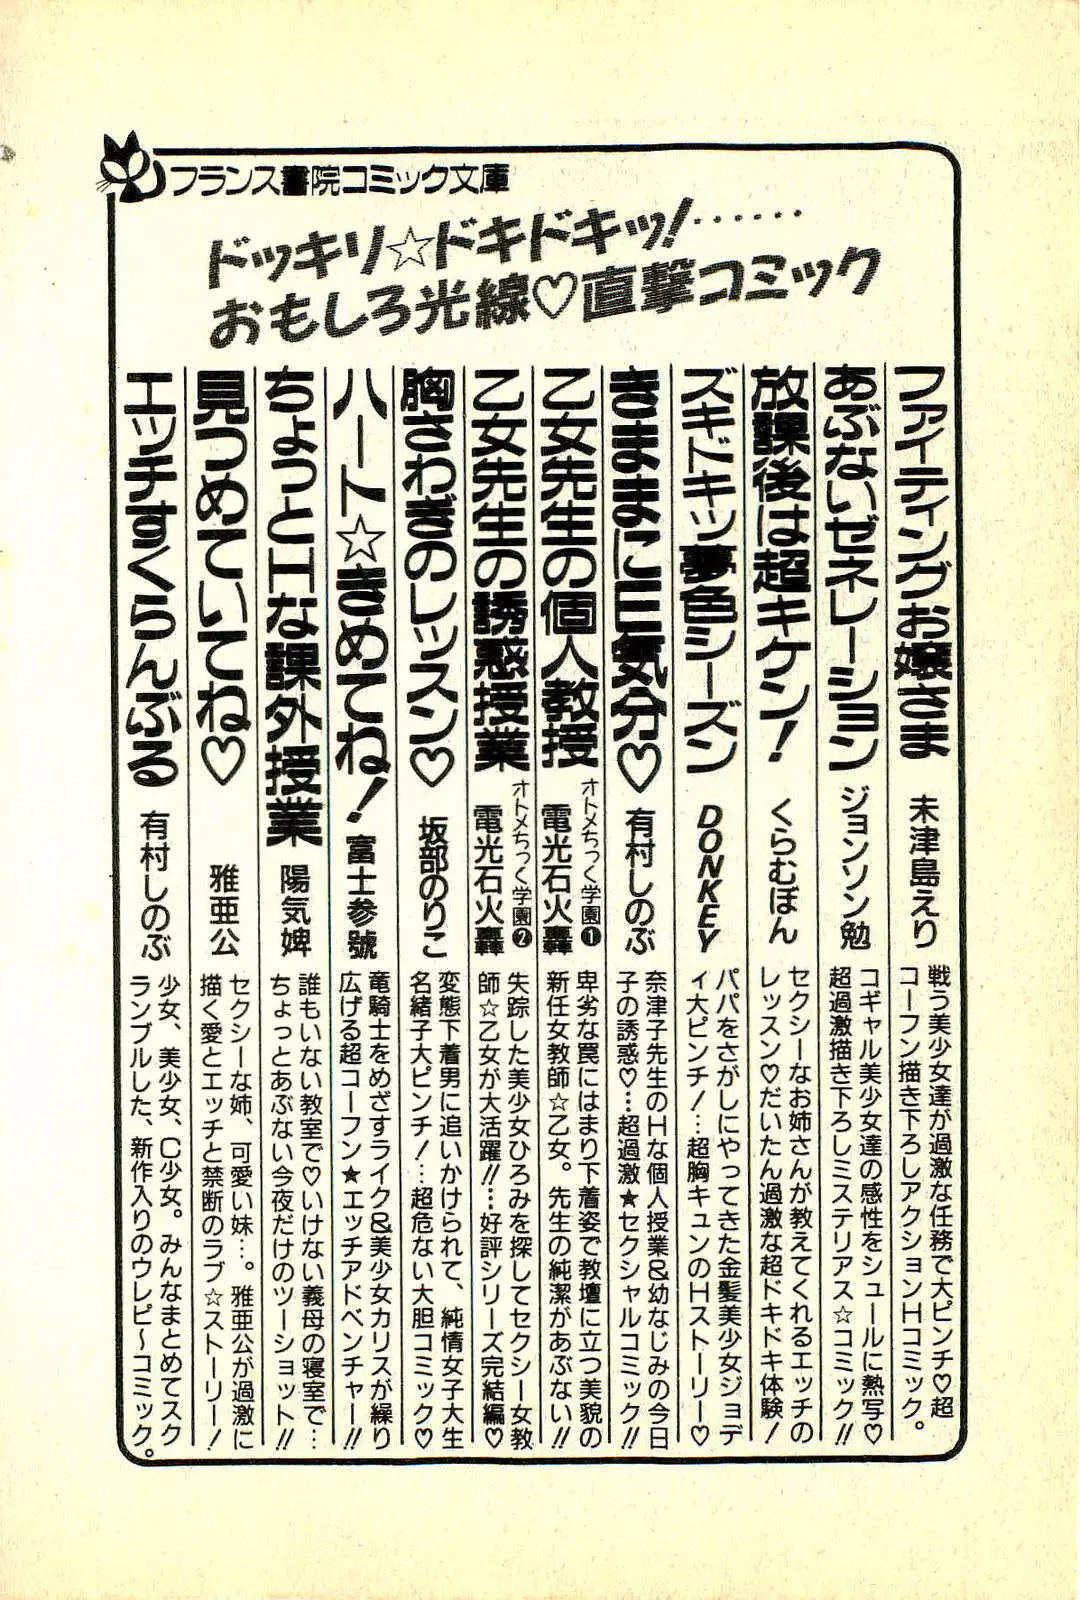 フランス書院コミック文庫
ドッキリ☆ドキドキッ!……
おもしろ光線♡直撃コミック
ファイティングお嬢さま
未津島えり
戦う美少女達が過激な任務で大ピンチ♡超
コーフン描き下ろしアクションHコミック。
あぶないゼネレーション
ジョンソン勉
コギャル美少女達の感性をシュールに熱写♡
超過激描き下ろしミステリアス☆コミック!!
放課後は超キケン!
くらむぼん
セクシーなお姉さんが教えてくれるエッチの
レッスン♡だいたん過激な超ドキドキ体験!
ズキドキッ夢色シーズン
DONKEY
パパをさがしにやってきた金髪美少女ジョデ
ィ大ピンチ!…超胸キュンのHストーリー♡
きままにE気分♡
有村しのぶ
奈津子先生のHな個人授業&幼なじみの今日
子の誘惑♡…超過激★セクシャルコミック!!
乙女先生の個人教授
オトメちっく学園❶
電光石火轟
卑劣な罠にはまり下着姿で教壇に立つ美貌の
新任女教師☆乙女。先生の純潔があぶない!!
乙女先生の誘惑授業
オトメちっく学園❷
電光石火轟
失踪した美少女ひろみを探してセクシー女教
師☆乙女が大活躍!!…好評シリーズ完結編♡
胸さわぎのレッスン♡
坂部のりこ
変態下着男に追いかけられて、純情女子大生
名緒子大ピンチ!…超危ない大胆コミック♡
ハート☆きめてね!
富士参號
竜騎士をめざすライク&美少女カリスが繰り
広げる超コーフン★エッチアドベンチャー!!
ちょっとHな課外授業
陽気婢
誰もいない教室で♡いけない義母の寝室で…
ちょっとあぶない今夜だけのツーショット!!
見つめていてね♡
雅亜公
セクシーな姉、可愛い妹…。雅亜公が過激に
描く愛とエッチと禁断のラブ☆ストーリー!
エッチすくらんぶる
有村しのぶ
少女、美少女、C少女。みんなまとめてスク
ランブルした、新作入りのウレピ〜コミック。